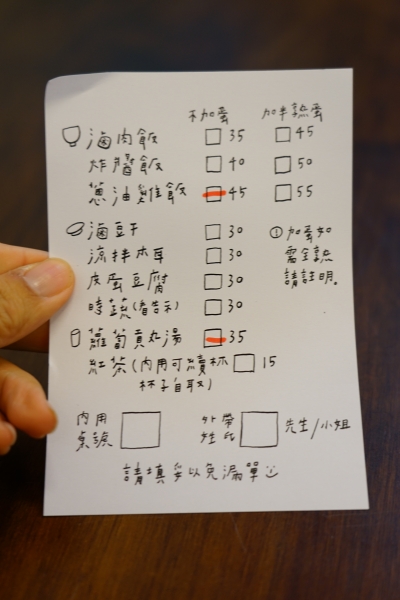 不加蛋 加半熟蛋
滷肉飯 35 45
炸醬飯 40 50
蔥油雞飯 45 55
滷豆干 30
涼拌木耳 30
皮蛋豆腐 30
時蔬(看告示) 30
①加蛋如
需全熟
請註明。
蘿蔔貢丸湯 35
紅茶(內用可續杯 15
杯子自取)
內用
桌號
外帶
姓氏 先生/小姐
請填妥以免漏單